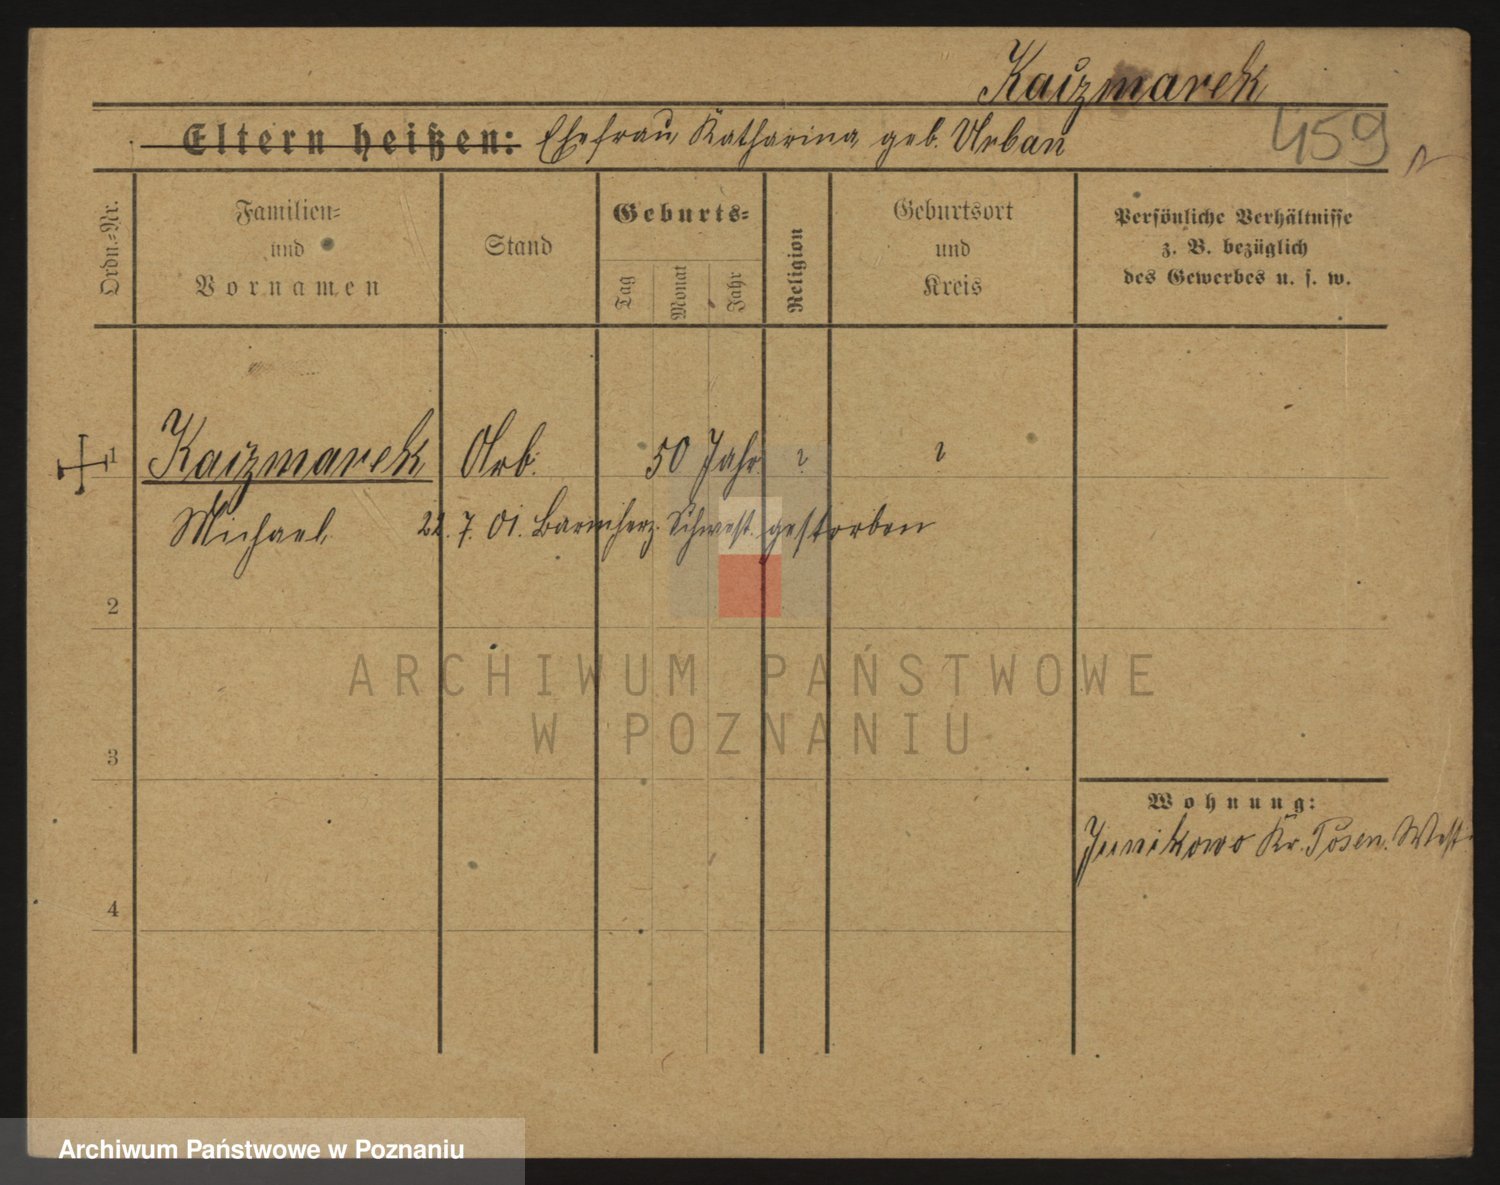 Kaczmarek
Eltern heißen: Ehefrau Katharina geb. Urban
459
Ordn.-Nr.
Familien-
und
Vornamen
Stand
Geburts-
Tag
Monat
Jahr
Religion
Geburtsort
und
Kreis
Persönliche Verhältnisse
z. B. bezüglich
des Gewerbes u. s. w.
1 Kaczmarek Arb. 50 Jahr ? ?
Michael 22. 7. 01. Barmherz. Schwest. gestorben
2
3
4
Wohnung:
Junikowo Kr. Posen. West
ARCHIWUM PAŃSTWOWE
W POZNANIU
Archiwum Państwowe w Poznaniu